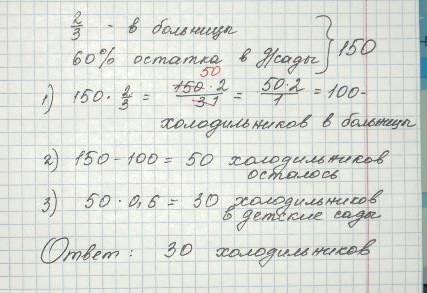 2/3 - в больницы
60% остатка в д/сады } 150
1) 150 · 2/3 = 150 · 2 / 3 · 1 = 50 · 2 / 1 = 100 -
50
холодильников в больницы
2) 150 - 100 = 50 холодильников
осталось
3) 50 · 0,6 = 30 холодильников
в детские сады
Ответ : 30 холодильников